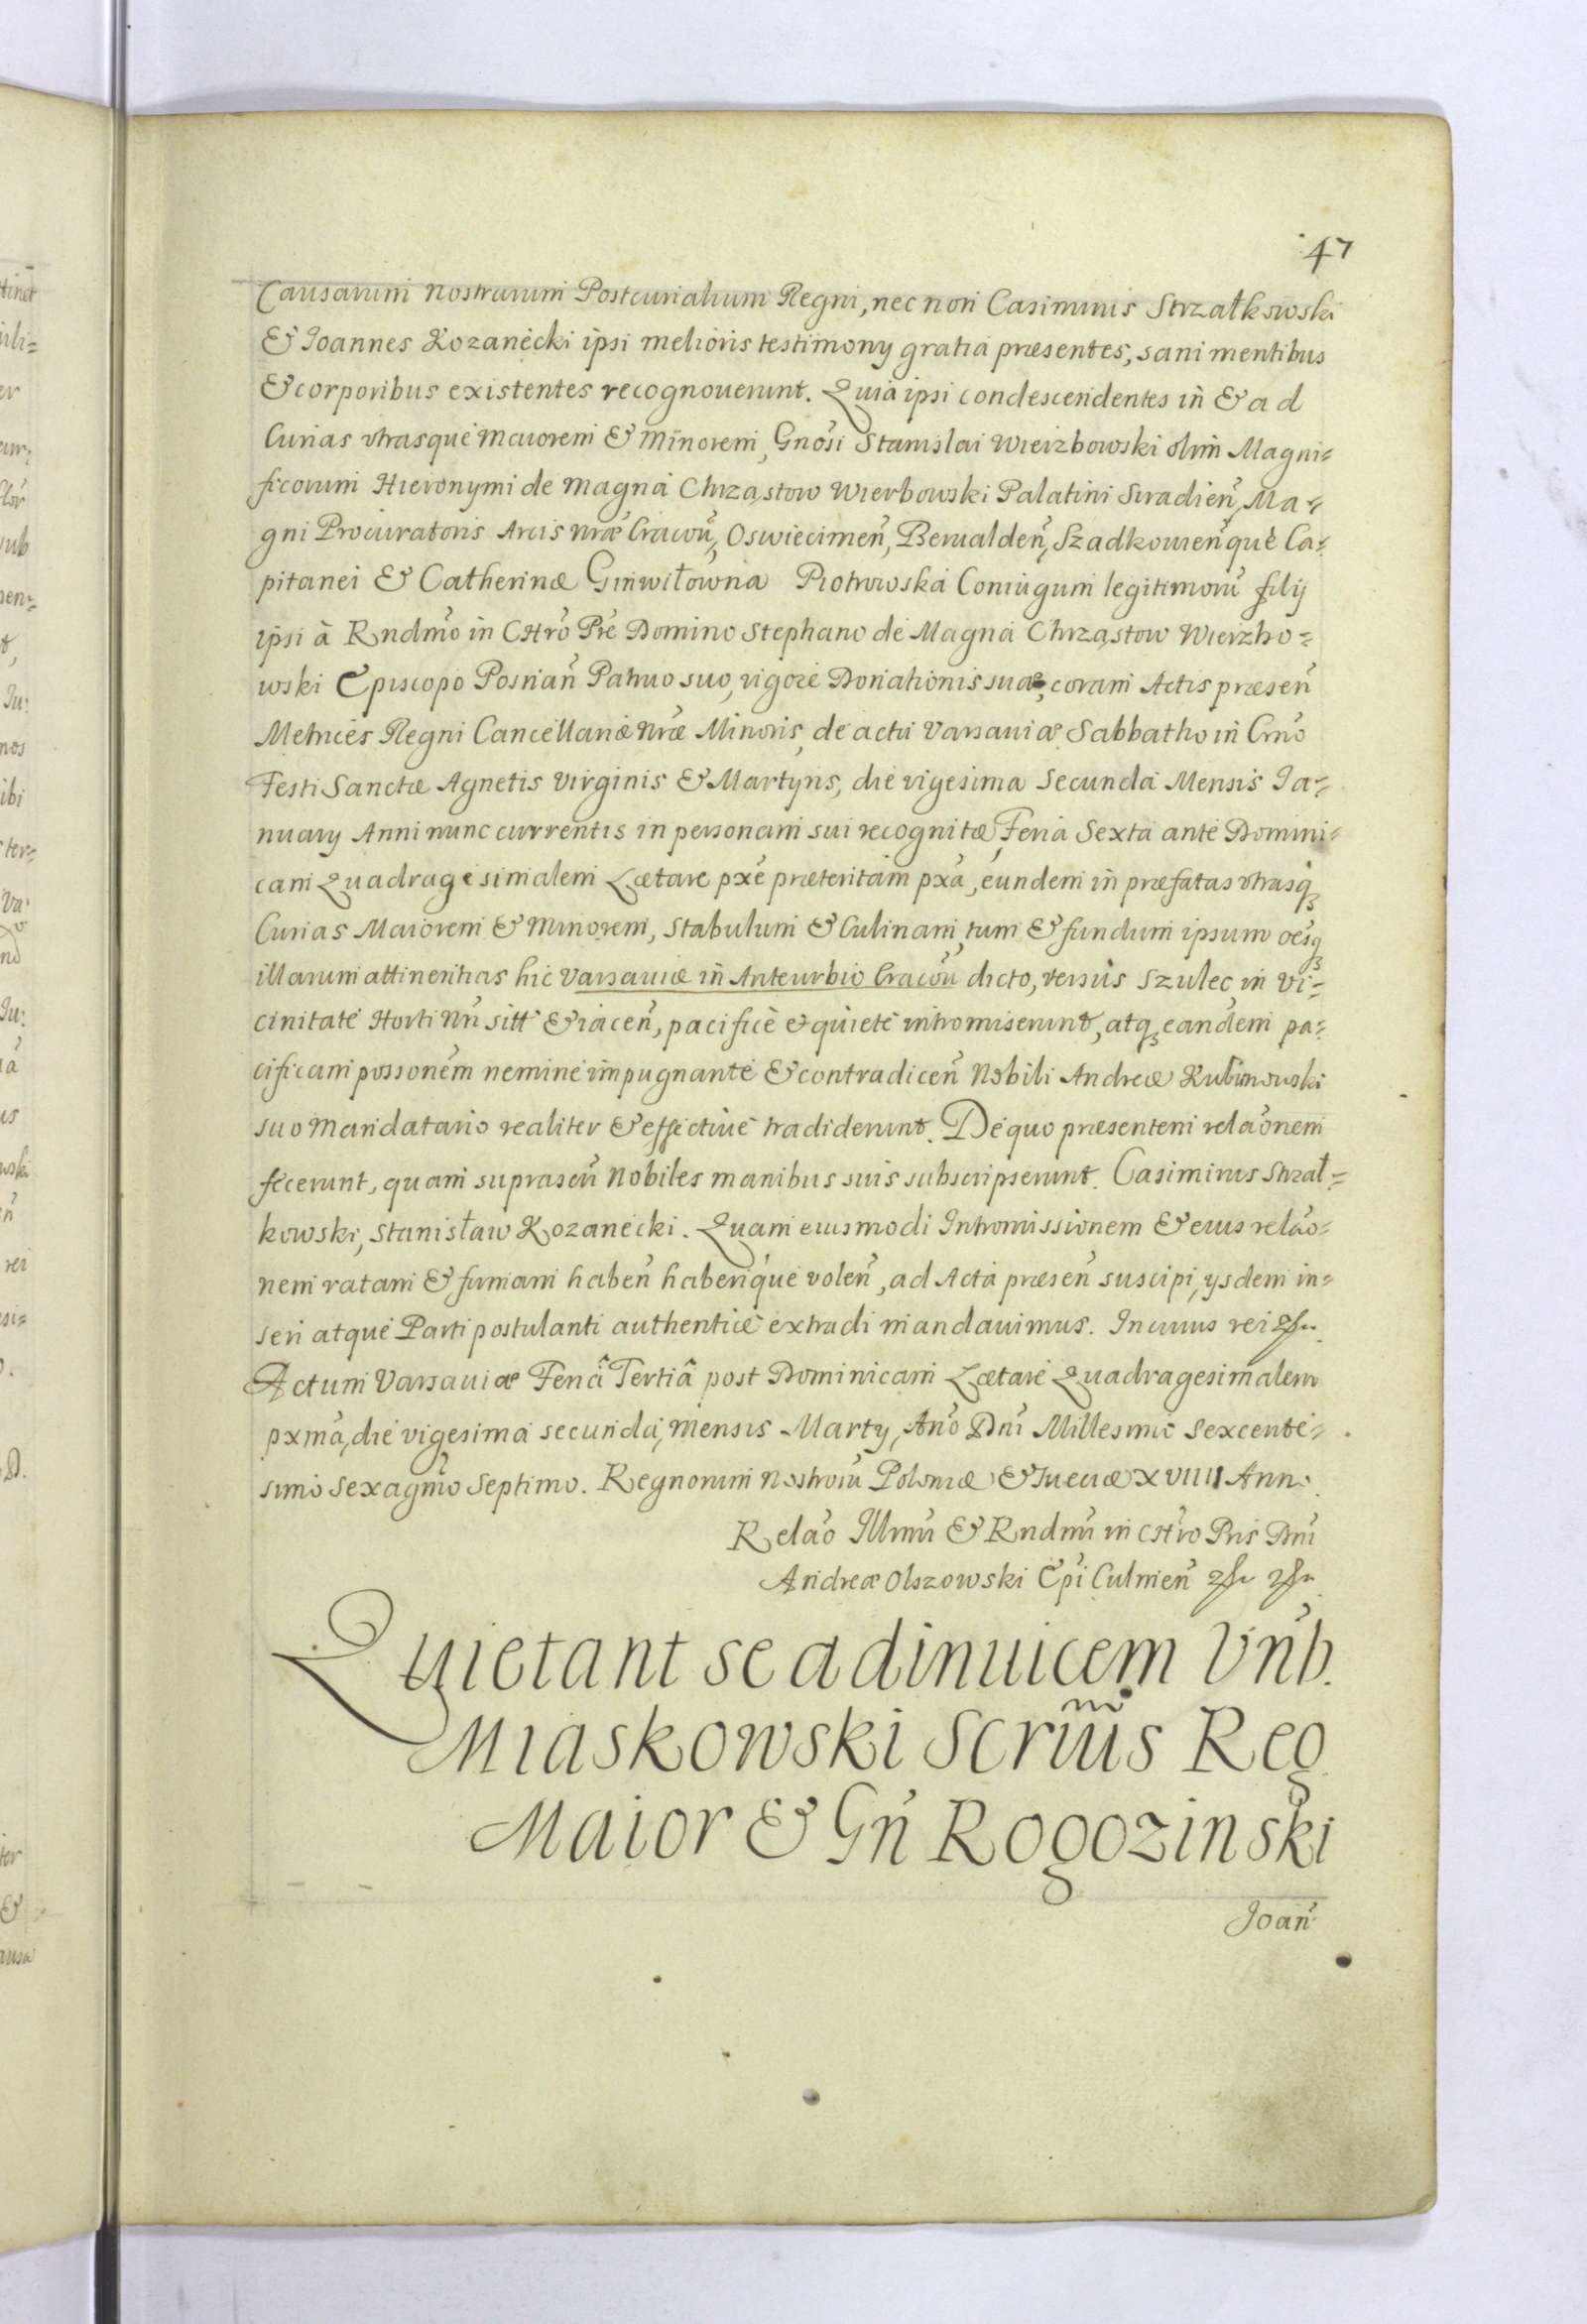 47
Causarum Nostrarum Postcurialium Regni, nec non Casimirus Strzałkowski
& Joannes Kozanecki ipsi melioris testimony gratia præsentes, sani mentibus
& corporibus existentes recognouerunt. Quia ipsi condescendentes in & ad
Curias vtrasque Maiorem & Minorem, Gnosi Stanislai Wierzbowski olim Magni=
ficorum Hieronymi de Magna Chrząstow Wierbowski Palatini Siradien, Ma=
gni Procuratoris Arcis nræ Cracou, Oswiecimen, Berualden, Szadkouienque Ca=
pitanei & Catherinæ Ginwiłowna Piotrowska Coniugum legitimoru filij
ipsi à Rndmo in CHro Pre Domino Stephano de Magna Chrząstow Wierzbo=
wski Episcopo Posnan Patruo suo, vigore Donationis suæ, coram Actis præsen
Metrices Regni Cancellariæ nræ Minoris, de actu Varsauiæ Sabbatho in Crno
Festi Sanctæ Agnetis Virginis & Martyris, die vigesima secunda Mensis Ja=
nuary Anni nunc currentis in personam sui recognitæ, Feria Sexta ante Domini=
cam Quadragesimalem Lætare pxe præteritam pxa, eundem in præfatas vtrasq
Curias Maiorem & Minorem, Stabulum & Culinam, tum & fundum ipsum oesq
illarum attinentias hic Varsauiæ in Anteurbio Cracou dicto, versus Szulec in Vi=
cinitate Horti Nri sitt & iacen, pacifice & quiete intromiserunt, atq eandem pa=
cificam possonem nemine impugnante & contradicen Nobili Andreæ Kubinowski
suo Mandatario realiter & effectiue tradiderunt. De quo præsentem relaonem
fecerunt, quam suprascri Nobiles manibus suis subscripserunt. Casimirus Strzał=
kowski, Stanisław Kozanecki. Quam eiusmodi Intromissionem & eius relao=
nem ratam & firmam haben haberique volen, ad Acta præsen suscipi, ysdem in=
seri atque Parti postulanti authentice extradi mandauimus. In cuius rei
Actum Varsauiæ Feriâ Tertiâ post Dominicam Lætare Quadragesimalem
pxma, die vigesima secunda, mensis Marty, Ano Dni Millesimo Sexcente=
simo Sexagmo Septimo. Regnorum Nostroru Poloniæ & Sueciæ XVIIII Anno.
Relao Illmi & Rndmi in CHro Pris Dni
Andreæ Olszowski Epi Culmen
Quietant se adinuicem Vnb.
Miaskowski Scrius Reg
Maior & Gn Rogozinski
Joan